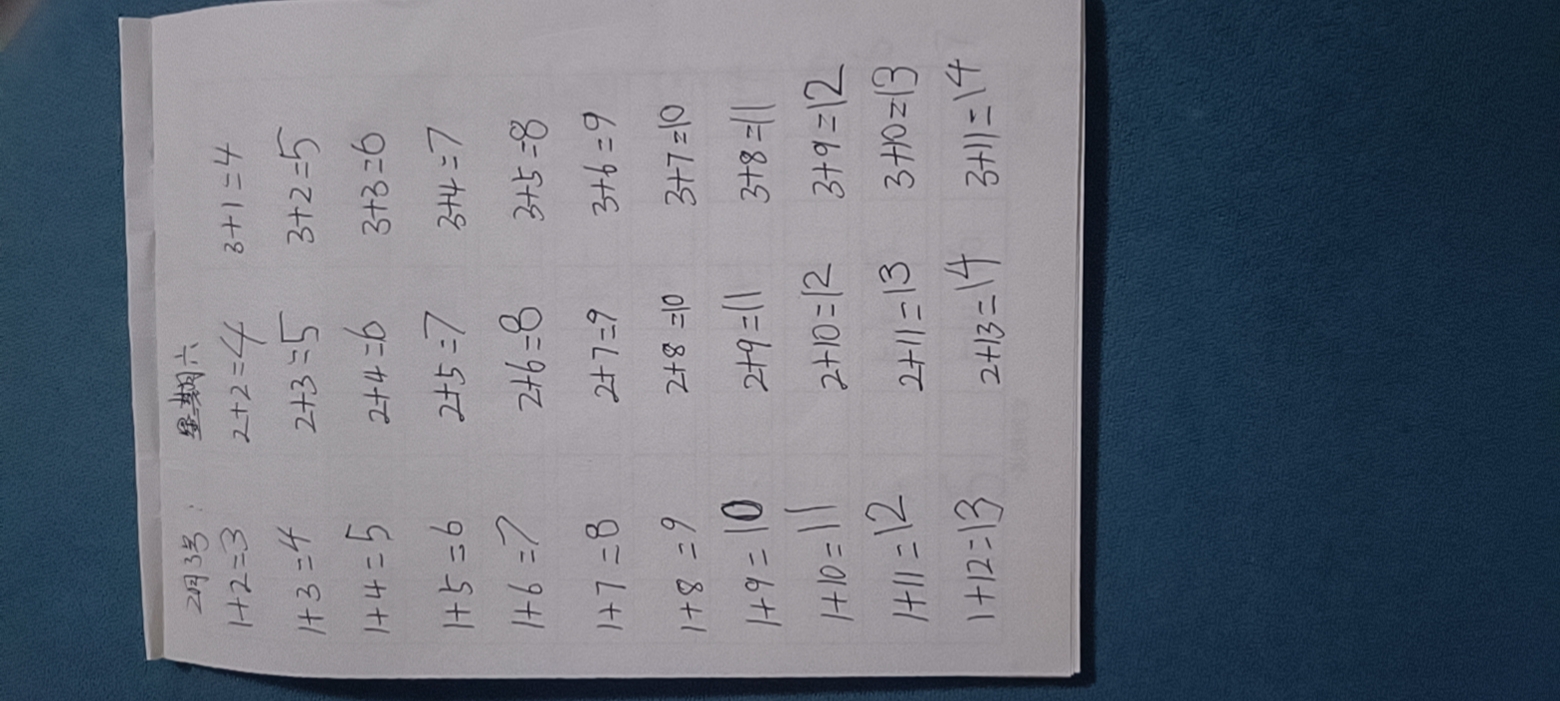 2月3号. 星期六
1+2=3 2+2=4 3+1=4
1+3=4 2+3=5 3+2=5
1+4=5 2+4=6 3+3=6
1+5=6 2+5=7 3+4=7
1+6=7 2+6=8 3+5=8
1+7=8 2+7=9 3+6=9
1+8=9 2+8=10 3+7=10
1+9=10 2+9=11 3+8=11
1+10=11 2+10=12 3+9=12
1+11=12 2+11=13 3+10=13
1+12=13 2+13=14 3+11=14